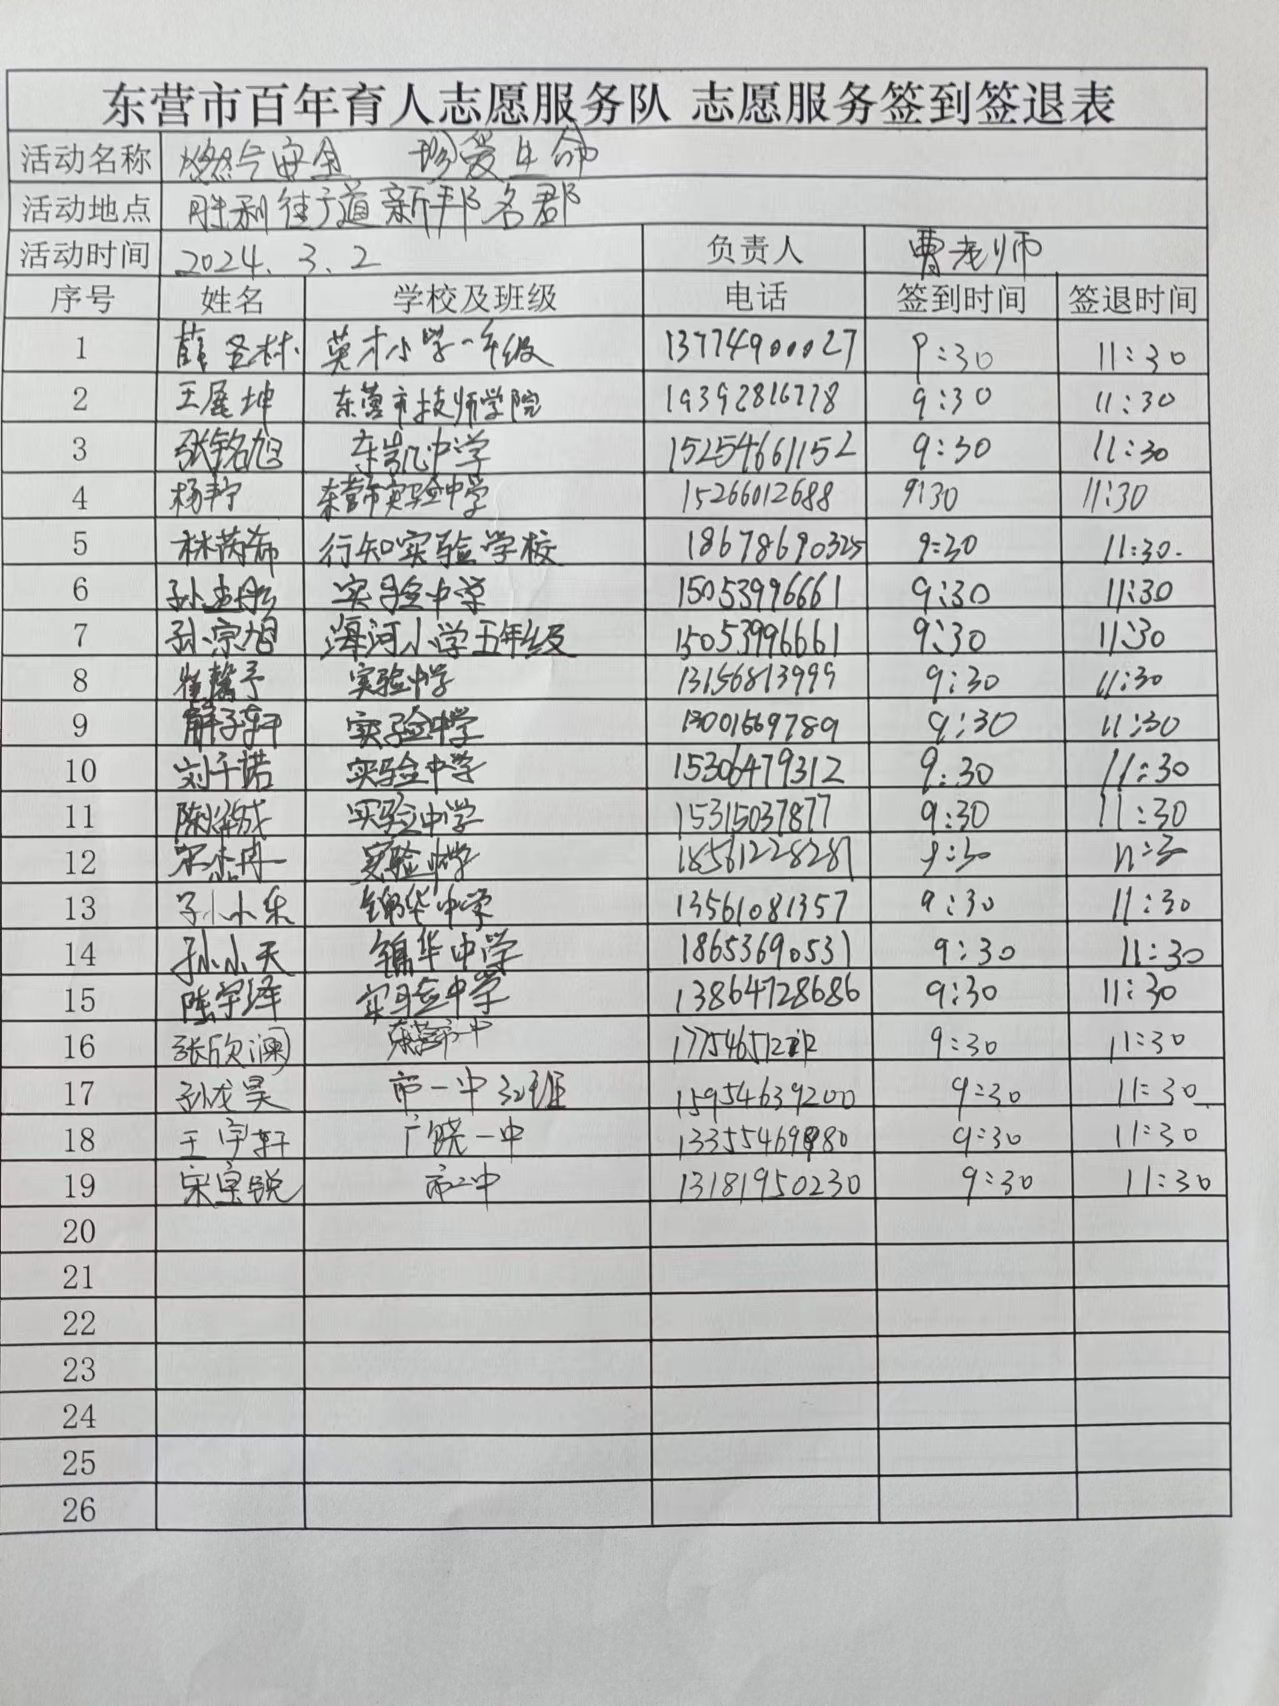 东营市百年育人志愿服务队 志愿服务签到签退表
活动名称 燃气安全 珍爱生命
活动地点 胜利街道新邦名郡
活动时间 2024.3.2 负责人 曹老师
序号 姓名 学校及班级 电话 签到时间 签退时间
1 薛圣林 英才小学一年级 13774900027 9:30 11:30
2 王展坤 东营市技师学院 19392816778 9:30 11:30
3 张铭旭 东凯中学 15254661152 9:30 11:30
4 杨宁 东营市实验中学 15266012688 9:30 11:30
5 林芮希 行知实验学校 18678690325 9:30 11:30.
6 孙 实验中学 15053996661 9:30 11:30
7 孙宗旭 海河小学五年级 15053996661 9:30 11:30
8 崔馨予 实验中学 13156813999 9:30 11:30
9 解子轩 实验中学 13001669789 9:30 11:30
10 刘千诺 实验中学 15306479312 9:30 11:30
11 陈烨城 实验中学 15315037877 9:30 11:30
12 宋 实验中学 18561228281 9:30 11:30
13 孙小乐 锦华中学 13561081357 9:30 11:30
14 孙小天 锦华中学 18653690531 9:30 11:30
15 陈宇泽 实验中学 13864728686 9:30 11:30
16 张欣澜 东营市一中 9:30 11:30
17 孙龙昊 市一中32班 15954639200 9:30 11:30
18 王宇轩 广饶一中 9:30 11:30
19 宋宝锐 市二中 13181950230 9:30 11:30
20
21
22
23
24
25
26